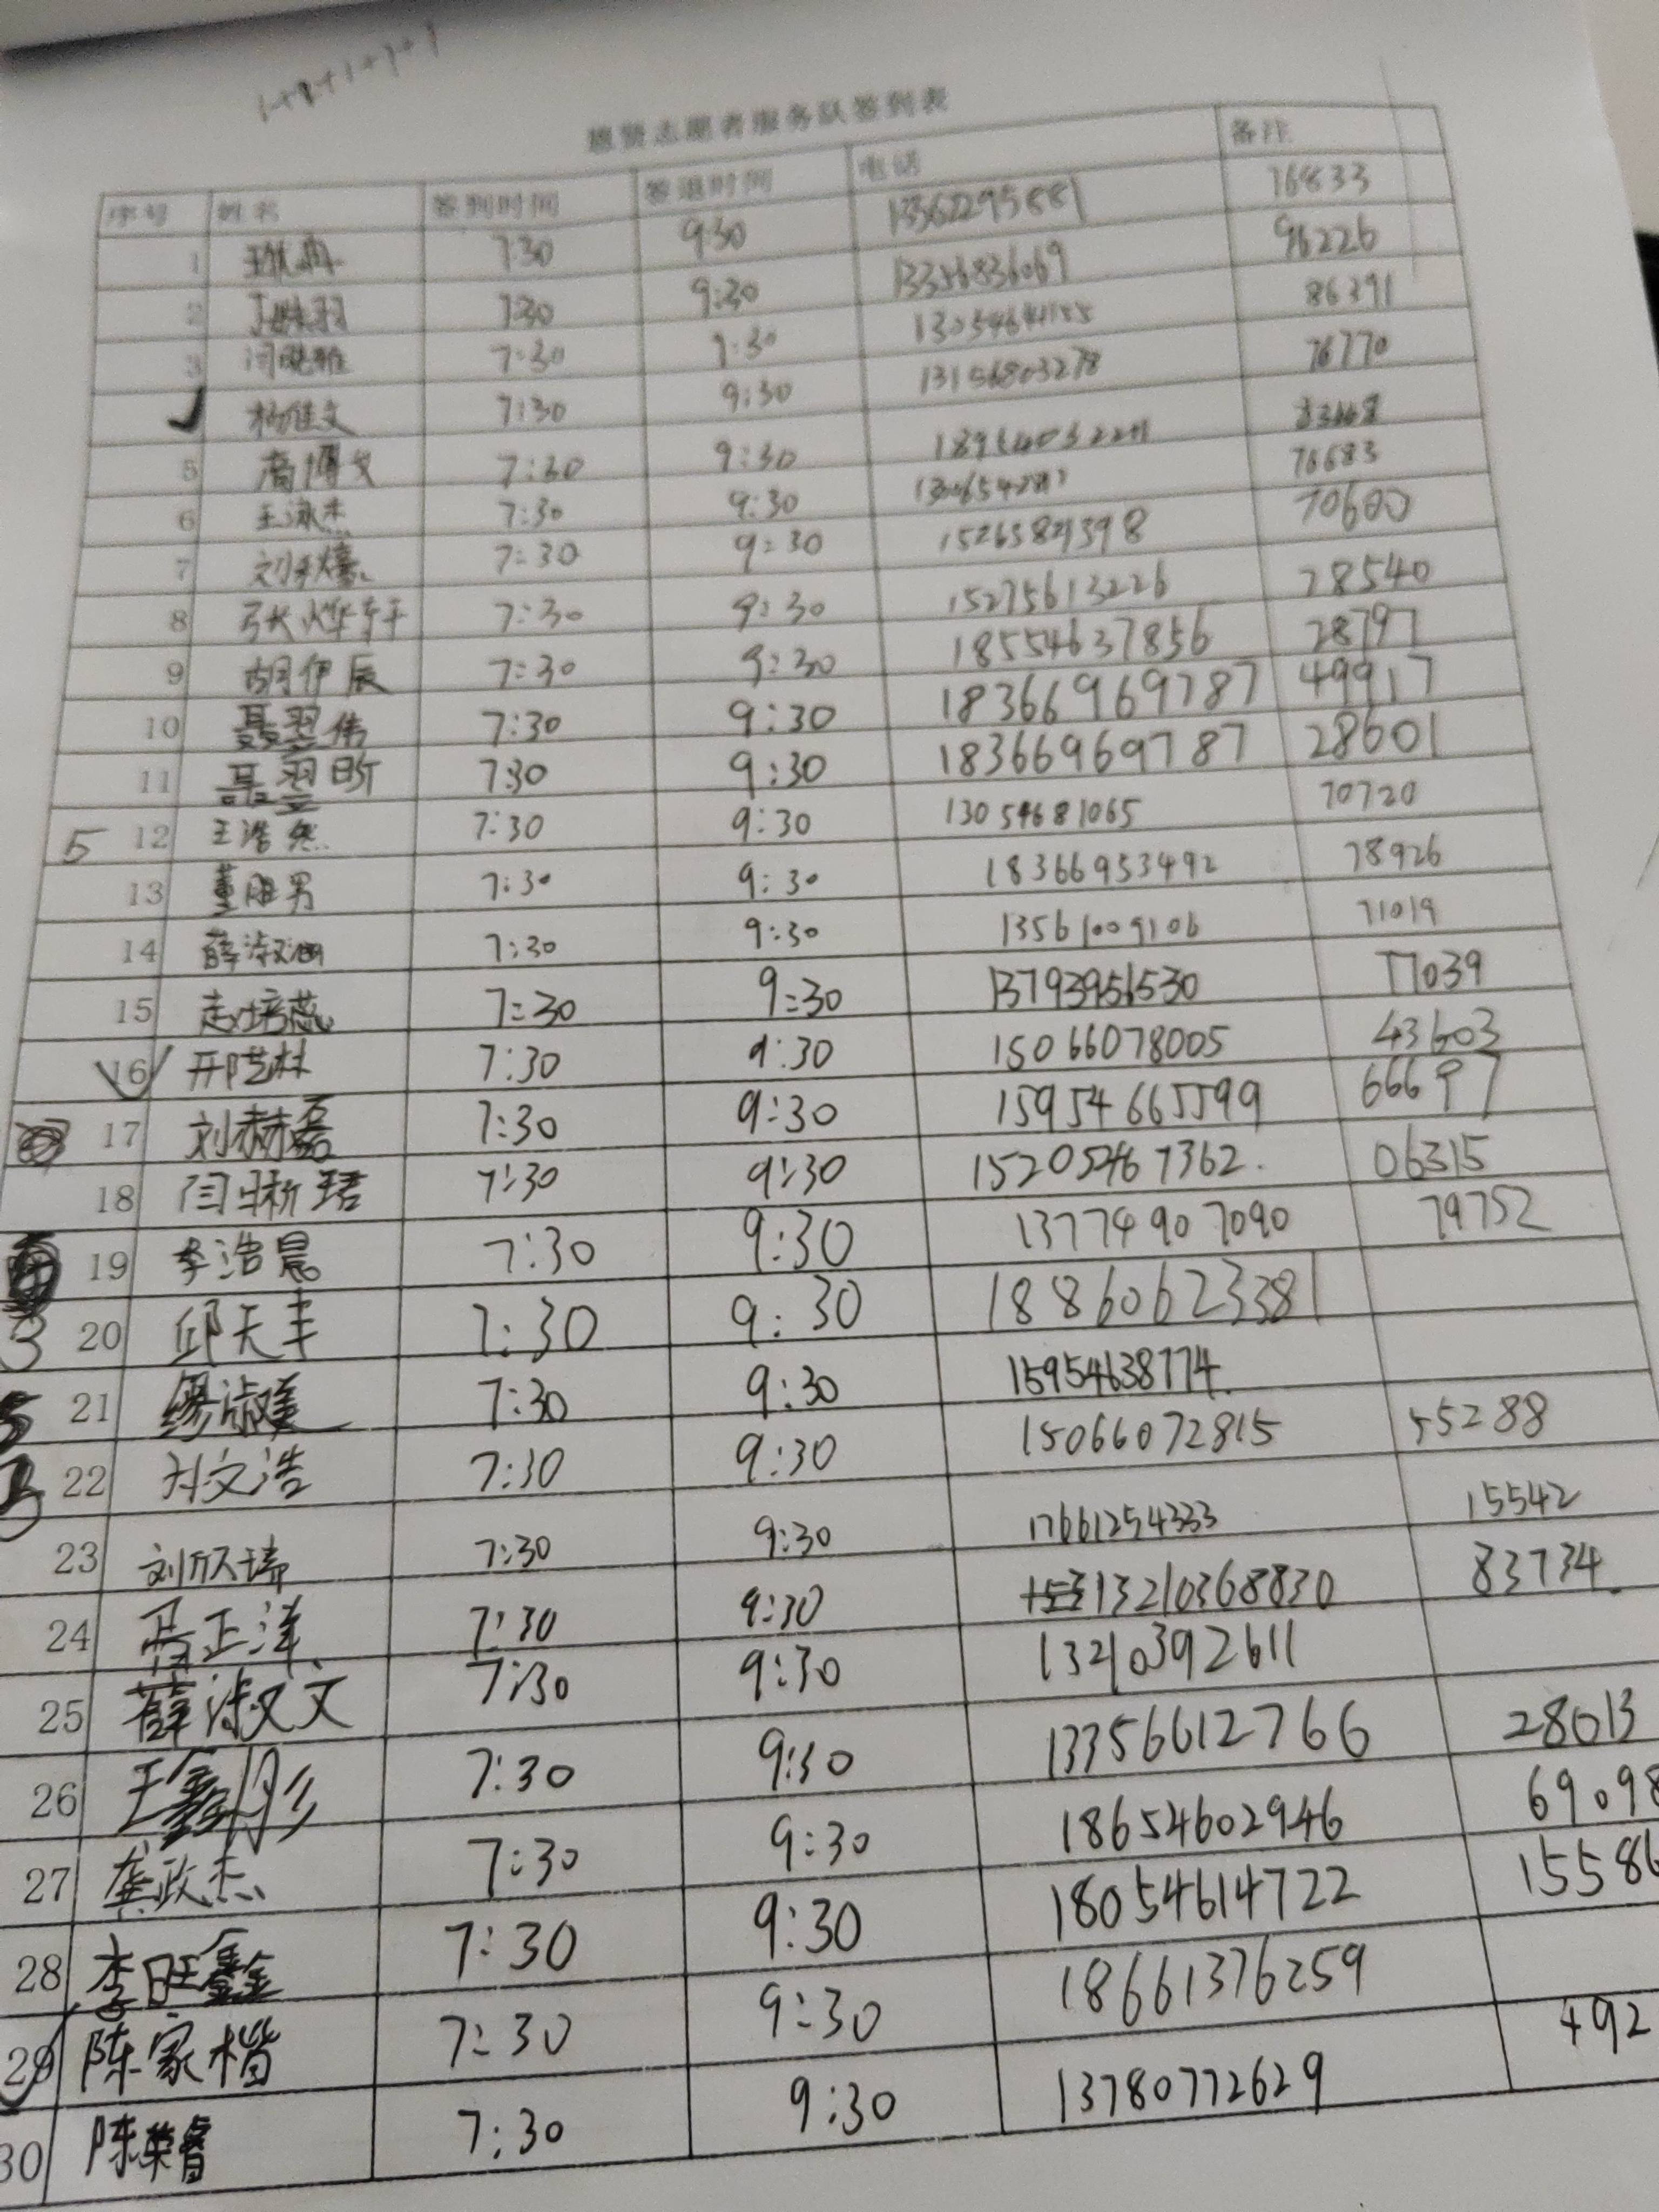 1+2+1+1+1
慧贤志愿者服务队签到表
序号 姓名 签到时间 签退时间 电话 备注
1 7:30 9:30 76833
2 7:30 9:30 13356836069 96226
3 7:30 9:30 86391
杨佳文 7:30 9:30 13156803278 76770
5 高博文 7:30 9:30
6 王泳杰 7:30 9:30 76683
7 7:30 9:30 70600
8 张烨轩 7:30 9:30 15275613226 78540
9 胡伊辰 7:30 9:30 18554637856 28797
10 聂翌伟 7:30 9:30 18366969787 49917
11 聂翌昕 7:30 9:30 18366969787 28601
5 12 王浩然 7:30 9:30 13054681065 70720
13 董胜男 7:30 9:30 18366953492 78926
14 薛淑涵 7:30 9:30 13561009106 71019
15 赵培蕊 7:30 9:30 13793956530 77039
16 邢艺林 7:30 9:30 15066078005 43603
17 刘赫磊 7:30 9:30 15954665599 66697
18 闫晰珺 7:30 9:30 15205467362. 06315
19 李浩晨 7:30 9:30 13774907090 79752
3 20 邱天丰 7:30 9:30 18860623381
5 21 7:30 9:30 15954638774.
3 22 刘文浩 7:30 9:30 15066072815 55288
23 刘欣瑞 7:30 9:30 17661254333 15542
24 冯正洋 7:30 9:30 13210368830 83734.
25 薛淑文 7:30 9:30 13210392611
26 王鑫彤 7:30 9:30 13356612766 28013
27 龚政杰 7:30 9:30 18654602946 69098
28 李旺鑫 7:30 9:30 18054614722 15586
29 陈家楷 7:30 9:30 18661376259
30 陈荣睿 7:30 9:30 13780772629 492